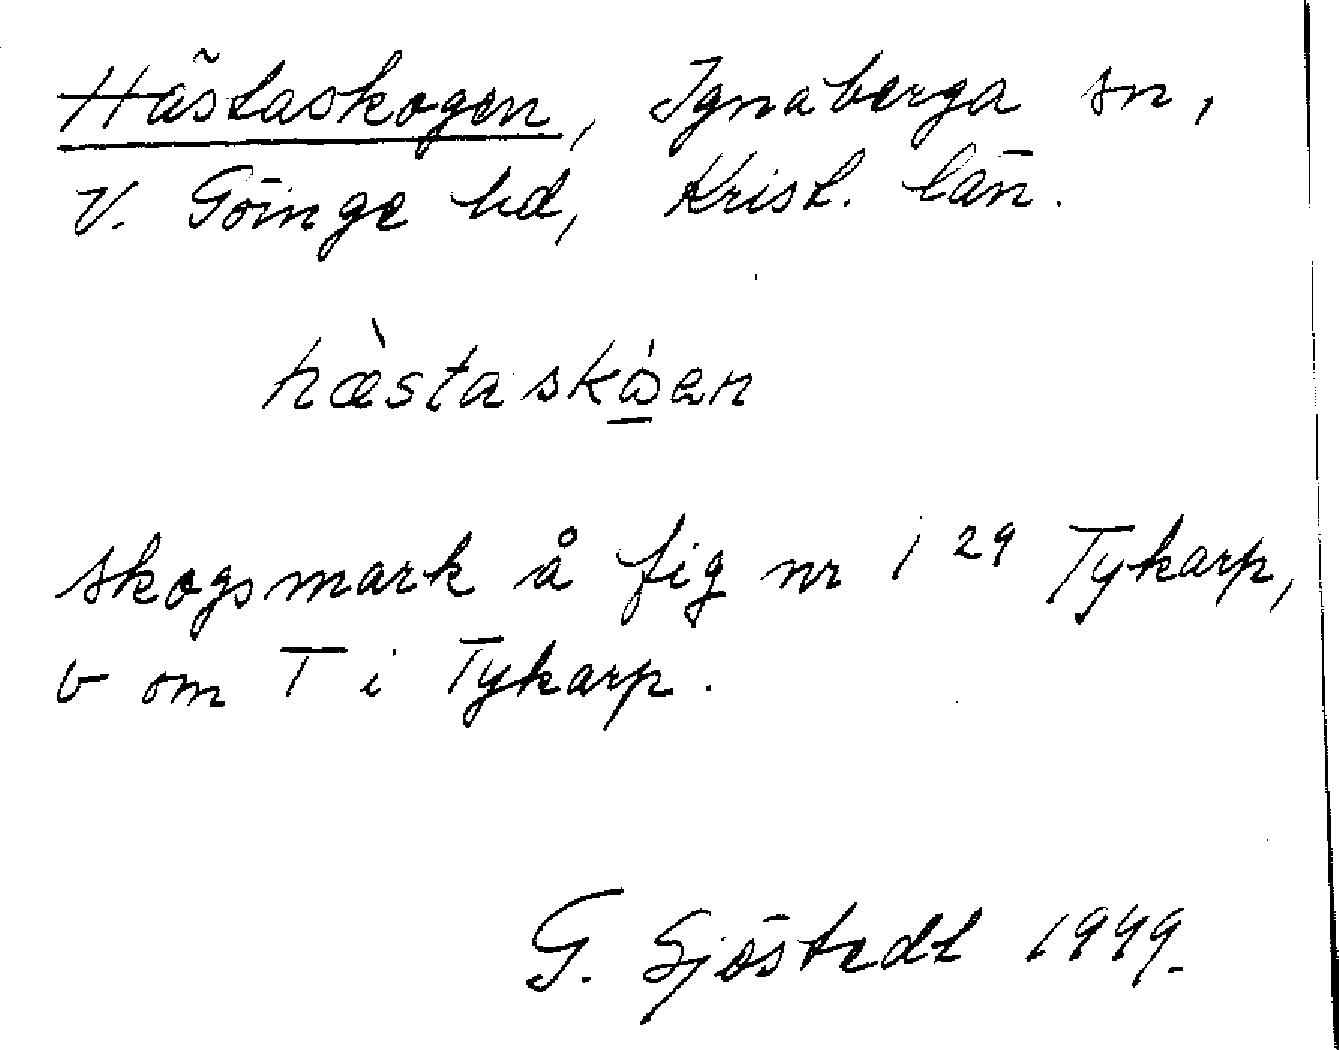 Hästaskogen, Ignaberga sn,
V. Göinge hd, Krist. län.
hæ̀staskǻen
skogsmark å fig nr 1 29 Tykarp,
v om T i Tykarp.
G. Sjöstedt 1949.